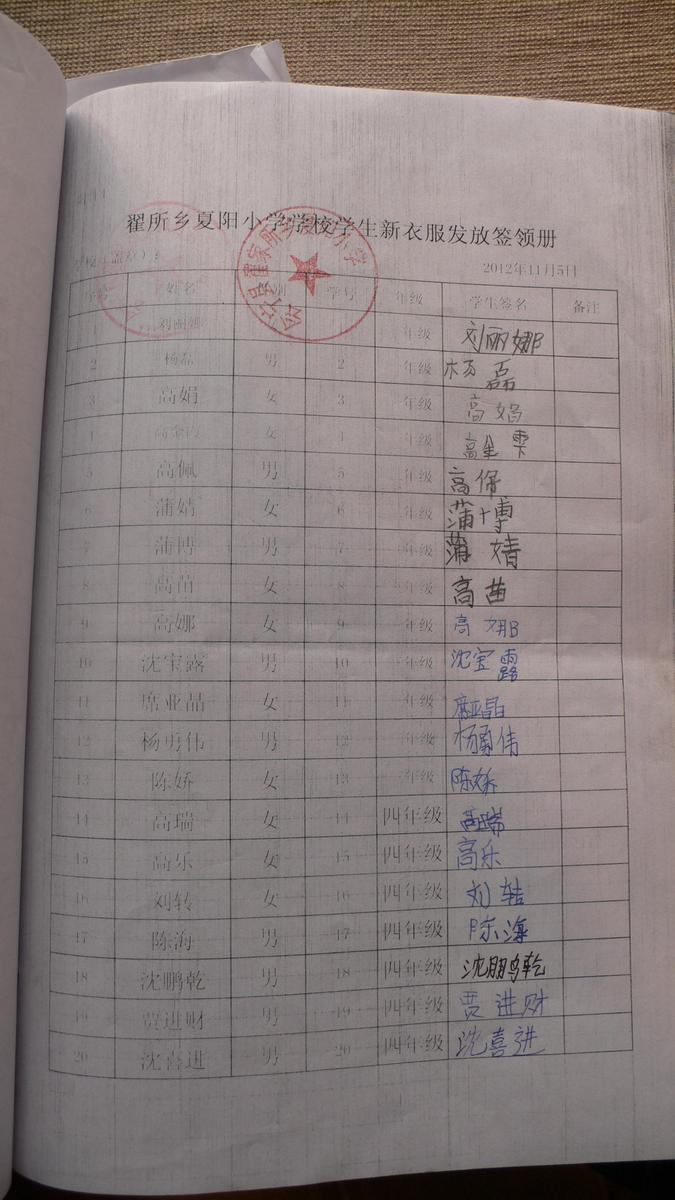 附件1
翟所乡夏阳小学学校学生新衣服发放签领册
学校（盖章）： 2012年11月5日
会宁县翟家所乡夏阳小学
序号 姓名 性别 学号 年级 学生签名 备注
1 刘丽娜 年级 刘丽娜
2 杨磊 男 2 年级 杨磊
3 高娟 女 3 年级 高娟
4 女 4 年级
5 高佩 男 5 年级
6 蒲婧 女 6 年级 蒲博
7 蒲博 男 7 年级 蒲婧
8 高苗 女 8 年级 高苗
9 高娜 女 9 年级 高娜
10 沈宝露 男 10 年级 沈宝露
11 席亚晶 女 11 年级 席亚晶
12 杨勇伟 男 12 年级 杨勇伟
13 陈娇 女 13 年级 陈娇
14 高瑞 女 14 四年级 高瑞
15 高乐 女 15 四年级 高乐
16 刘转 女 16 四年级 刘转
17 陈海 男 17 四年级 陈海
18 沈鹏乾 男 18 四年级 沈鹏乾
19 贾进财 男 19 四年级 贾进财
20 沈喜进 男 20 四年级 沈喜进